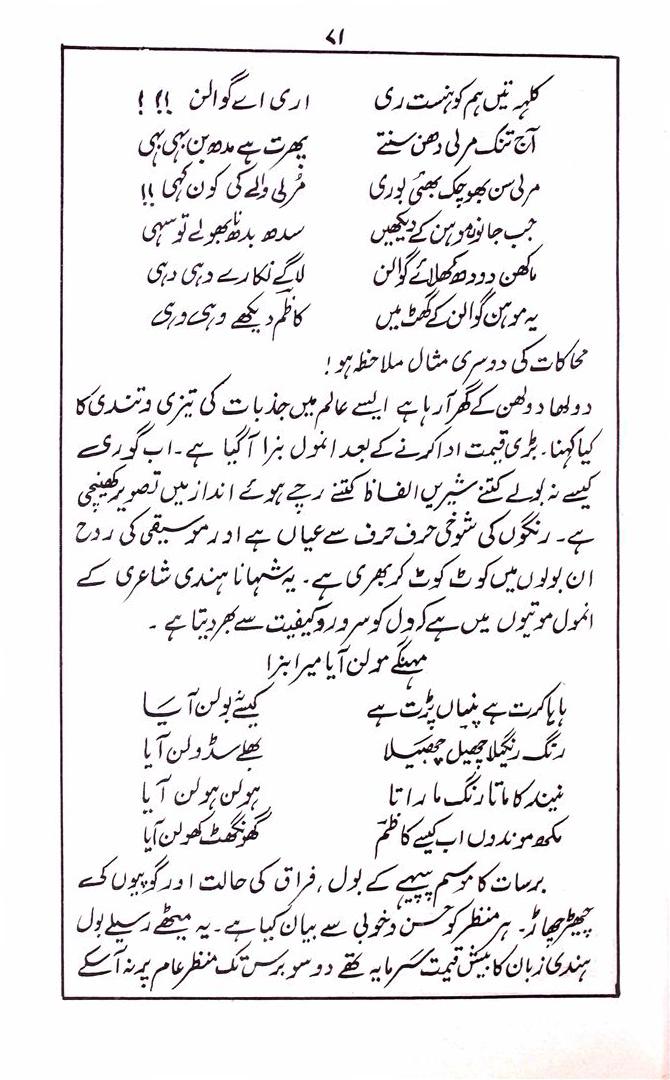 ۷۱
کلہہ تیں ہم کو ہنست ری اری اے گوالن !!! !
آج تنک مرلی دھن سنتے پھرت ہے مدھ بن بہی بہی
مرلی سن بھوچک بھئی بوری مُرلی والے کی کون کہی !!
جب جانوں موہن کے دیکھیں سدھ بدھ نا بھولے تو سہی
ماکھن دودھ کھلائے گوالن لاگے نکارے دہی دہی
یہ موہن گوالن کے گھٹ میں کاظم دیکھے وہی وہی
محاکات کی دوسری مثال ملاحظہ ہو!
دولھا دولھن کے گھر آ رہا ہے ایسے عالم میں جذبات کی تیزی و تندی کا
کیا کہنا۔ بڑی قیمت ادا کرنے کے بعد انمول بنرا آ گیا ہے۔ اب گوری
کیسے نہ بولے کتنے شیریں الفاظ کتنے رچے ہوئے انداز میں تصویر کھینچی
ہے۔ رنگوں کی شوخی حرف حرف سے عیاں ہے اور موسیقی کی روح
ان بولوں میں کوٹ کوٹ کر بھری ہے۔ یہ شہانا ہندی شاعری کے
انمول موتیوں میں ہے کہ دل کو سرور و کیفیت سے بھر دیتا ہے ۔
مہنگے مولن آیا میرا بنرا
ہاہا کرت ہے پنیاں پڑت ہے کیسئے بولن آیا
رنگ رنگیلا چھیل چھبیلا بھلے سڈولن آیا
نیند کا ماتا رنگ ما راتا ہولن ہولن آیا
مکھ موندوں اب کیسے کاظم گھونگھٹ کھولن آیا
برسات کا موسم پپیہے کے بول، فراق کی حالت اور گوپیوں کے
چھیڑ چھاڑ۔ ہر منظر کو حسن و خوبی سے بیان کیا ہے۔ یہ میٹھے رسیلے بول
ہندی زبان کا بیش قیمت سرمایہ تھے دو سو برس تک منظر عام پر نہ آ سکے